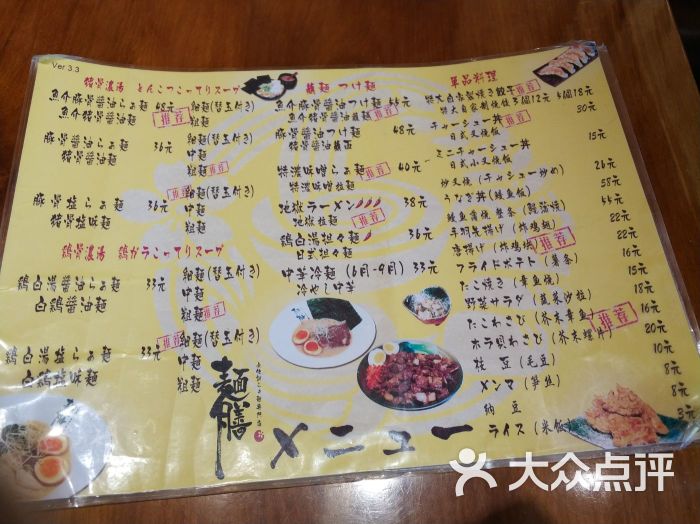 Ver 3.3
猪骨濃湯 とんこつこってりスープ
魚介豚骨醤油らぁ麺 48元 細麺(替玉付き)
魚介猪骨醤油麺 粗麺
推荐
豚骨醤油らぁ麺 36元 細麺(替玉付き)
猪骨醤油麺 中麺
粗麺 推荐
豚骨塩らぁ麺 36元 細麺(替玉付き)
猪骨塩味麺 中麺
粗麺
推荐
鶏骨濃湯 鶏ガラこってりスープ
鶏白湯醤油らぁ麺 33元 細麺(替玉付き)
白鶏醤油麺 中麺
粗麺 推荐
鶏白湯塩らぁ麺 33元 細麺(替玉付き)
白鶏塩味麺 中麺
粗麺
推荐
蘸麺 つけ麺
魚介豚骨醤油つけ麺
魚介猪骨醤油蘸麺
推荐
豚骨醤油つけ麺 48元
猪骨醤油蘸麺
特濃味噌らぁ麺 40元
特濃味噌拉麺
推荐
地獄ラーメン 38元
地獄拉麺
推荐
鶏白湯担々麺 36元
日式担々麺
中華冷麺 (6月-9月) 33元
冷やし中華
単品料理
特大自家製焼き餃子 推荐
特大自家制煎饺 3個12元 5個18元
チャーシュー丼 30元
日式叉烧飯
推荐
ミニチャーシュー丼 15元
日式小叉烧飯
炒叉烧 (チャシュー炒め) 26元
うなぎ丼 (鳗鱼飯) 58元
鳗鱼蒲烧 整条 (鰻蒲焼) 55元
手羽先揚げ (炸鸡翅) 22元
唐揚げ (炸鸡块) 22元
推荐
フライドポテト (薯条) 16元
たこ焼き (章鱼烧) 15元
野菜サラダ (蔬菜沙拉) 18元
たこわさび (芥末章鱼) 16元
推荐
ホラ貝わさび (芥末螺片) 20元
枝豆 (毛豆) 10元
メンマ (笋丝) 8元
納豆 8元
ライス (米飯) 3元
麺膳
メニュー
大众点评